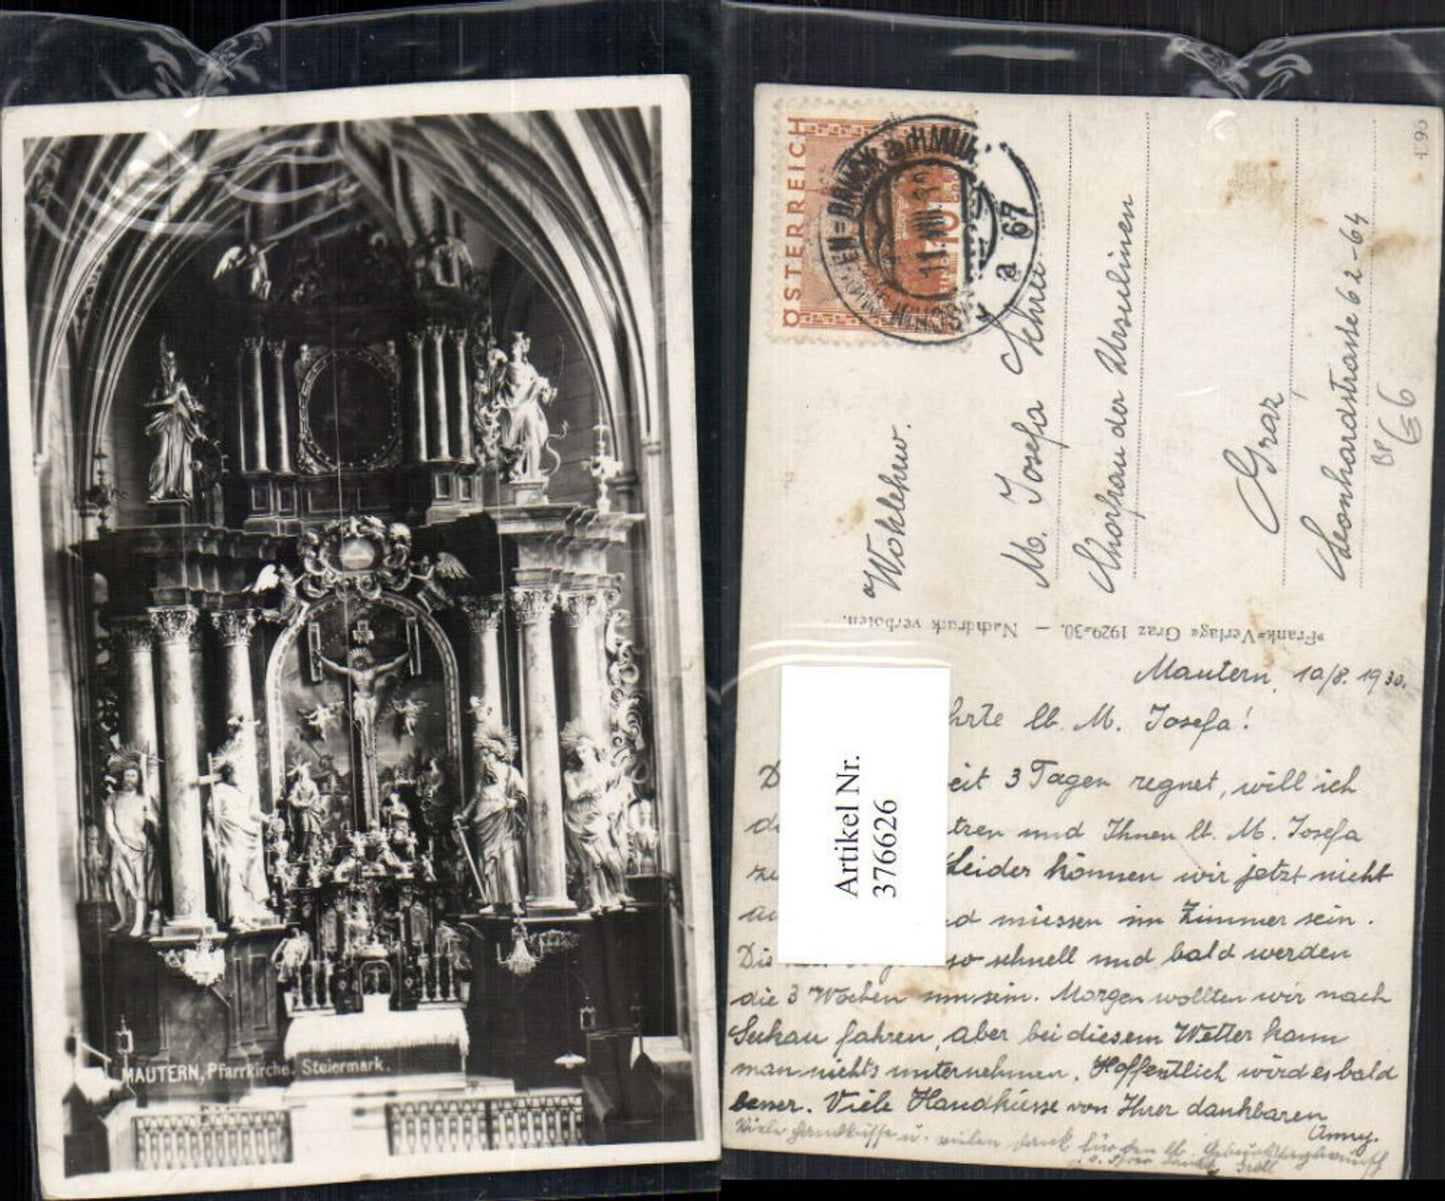 MAUTERN, Pfarrkirche. Steiermark.
ÖSTERREICH
10
11.VIII.
a 67
Wohlehrw.
M. Josefa
Chorfrau der Ursulinen
Graz
Leonhardstraße 62-64
»Frank«-Verlag« Graz 1929-30. — Nachdruck verboten.
Artikel Nr.
376626
Mautern, 10/8. 1930.
hrte lb. M. Josefa!
eit 3 Tagen regnet, will ich
und Ihnen lb. M. Josefa
Leider können wir jetzt nicht
müssen im Zimmer sein.
so schnell und bald werden
die 3 Wochen um sein. Morgen wollten wir nach
Seckau fahren, aber bei diesem Wetter kann
man nichts unternehmen. Hoffentlich wird es bald
besser. Viele Handküsse von Ihrer dankbaren
Anny.
Viele Handküsse u. vielen Dank für den lb.